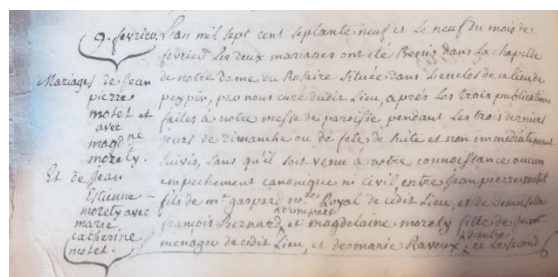 9. fevrier.
Mariages de Jean
pierre
motet et
avec
magd.ne
morety.
Et de Jean
Estienne
morety avec
marie
catherine
motet.
L'an mil sept cent septante neuf et le neuf du mois de
fevrier les deux mariages ont été Benis dans la chapelle
de notre Dame du Rosaire située dans l'enclos de ce lieu de
peypin, par nous curé dudit Lieu, après les trois publications
faites a notre messe de paroisse pendant les trois derniers
jours de dimanche ou de fete de suite et non immediatement
suivis, sans qu'il soit venu a notre connoissance aucun
empechement canonique ni civil entre Jean pierre motet
fils de m.e gaspard no.re Royal de cedit Lieu, et de demoiselle
françois Bernard, d'une part et magdelaine morety fille de Jean
menager de cedit Lieu, et de marie Ravoux, d'autre et la second